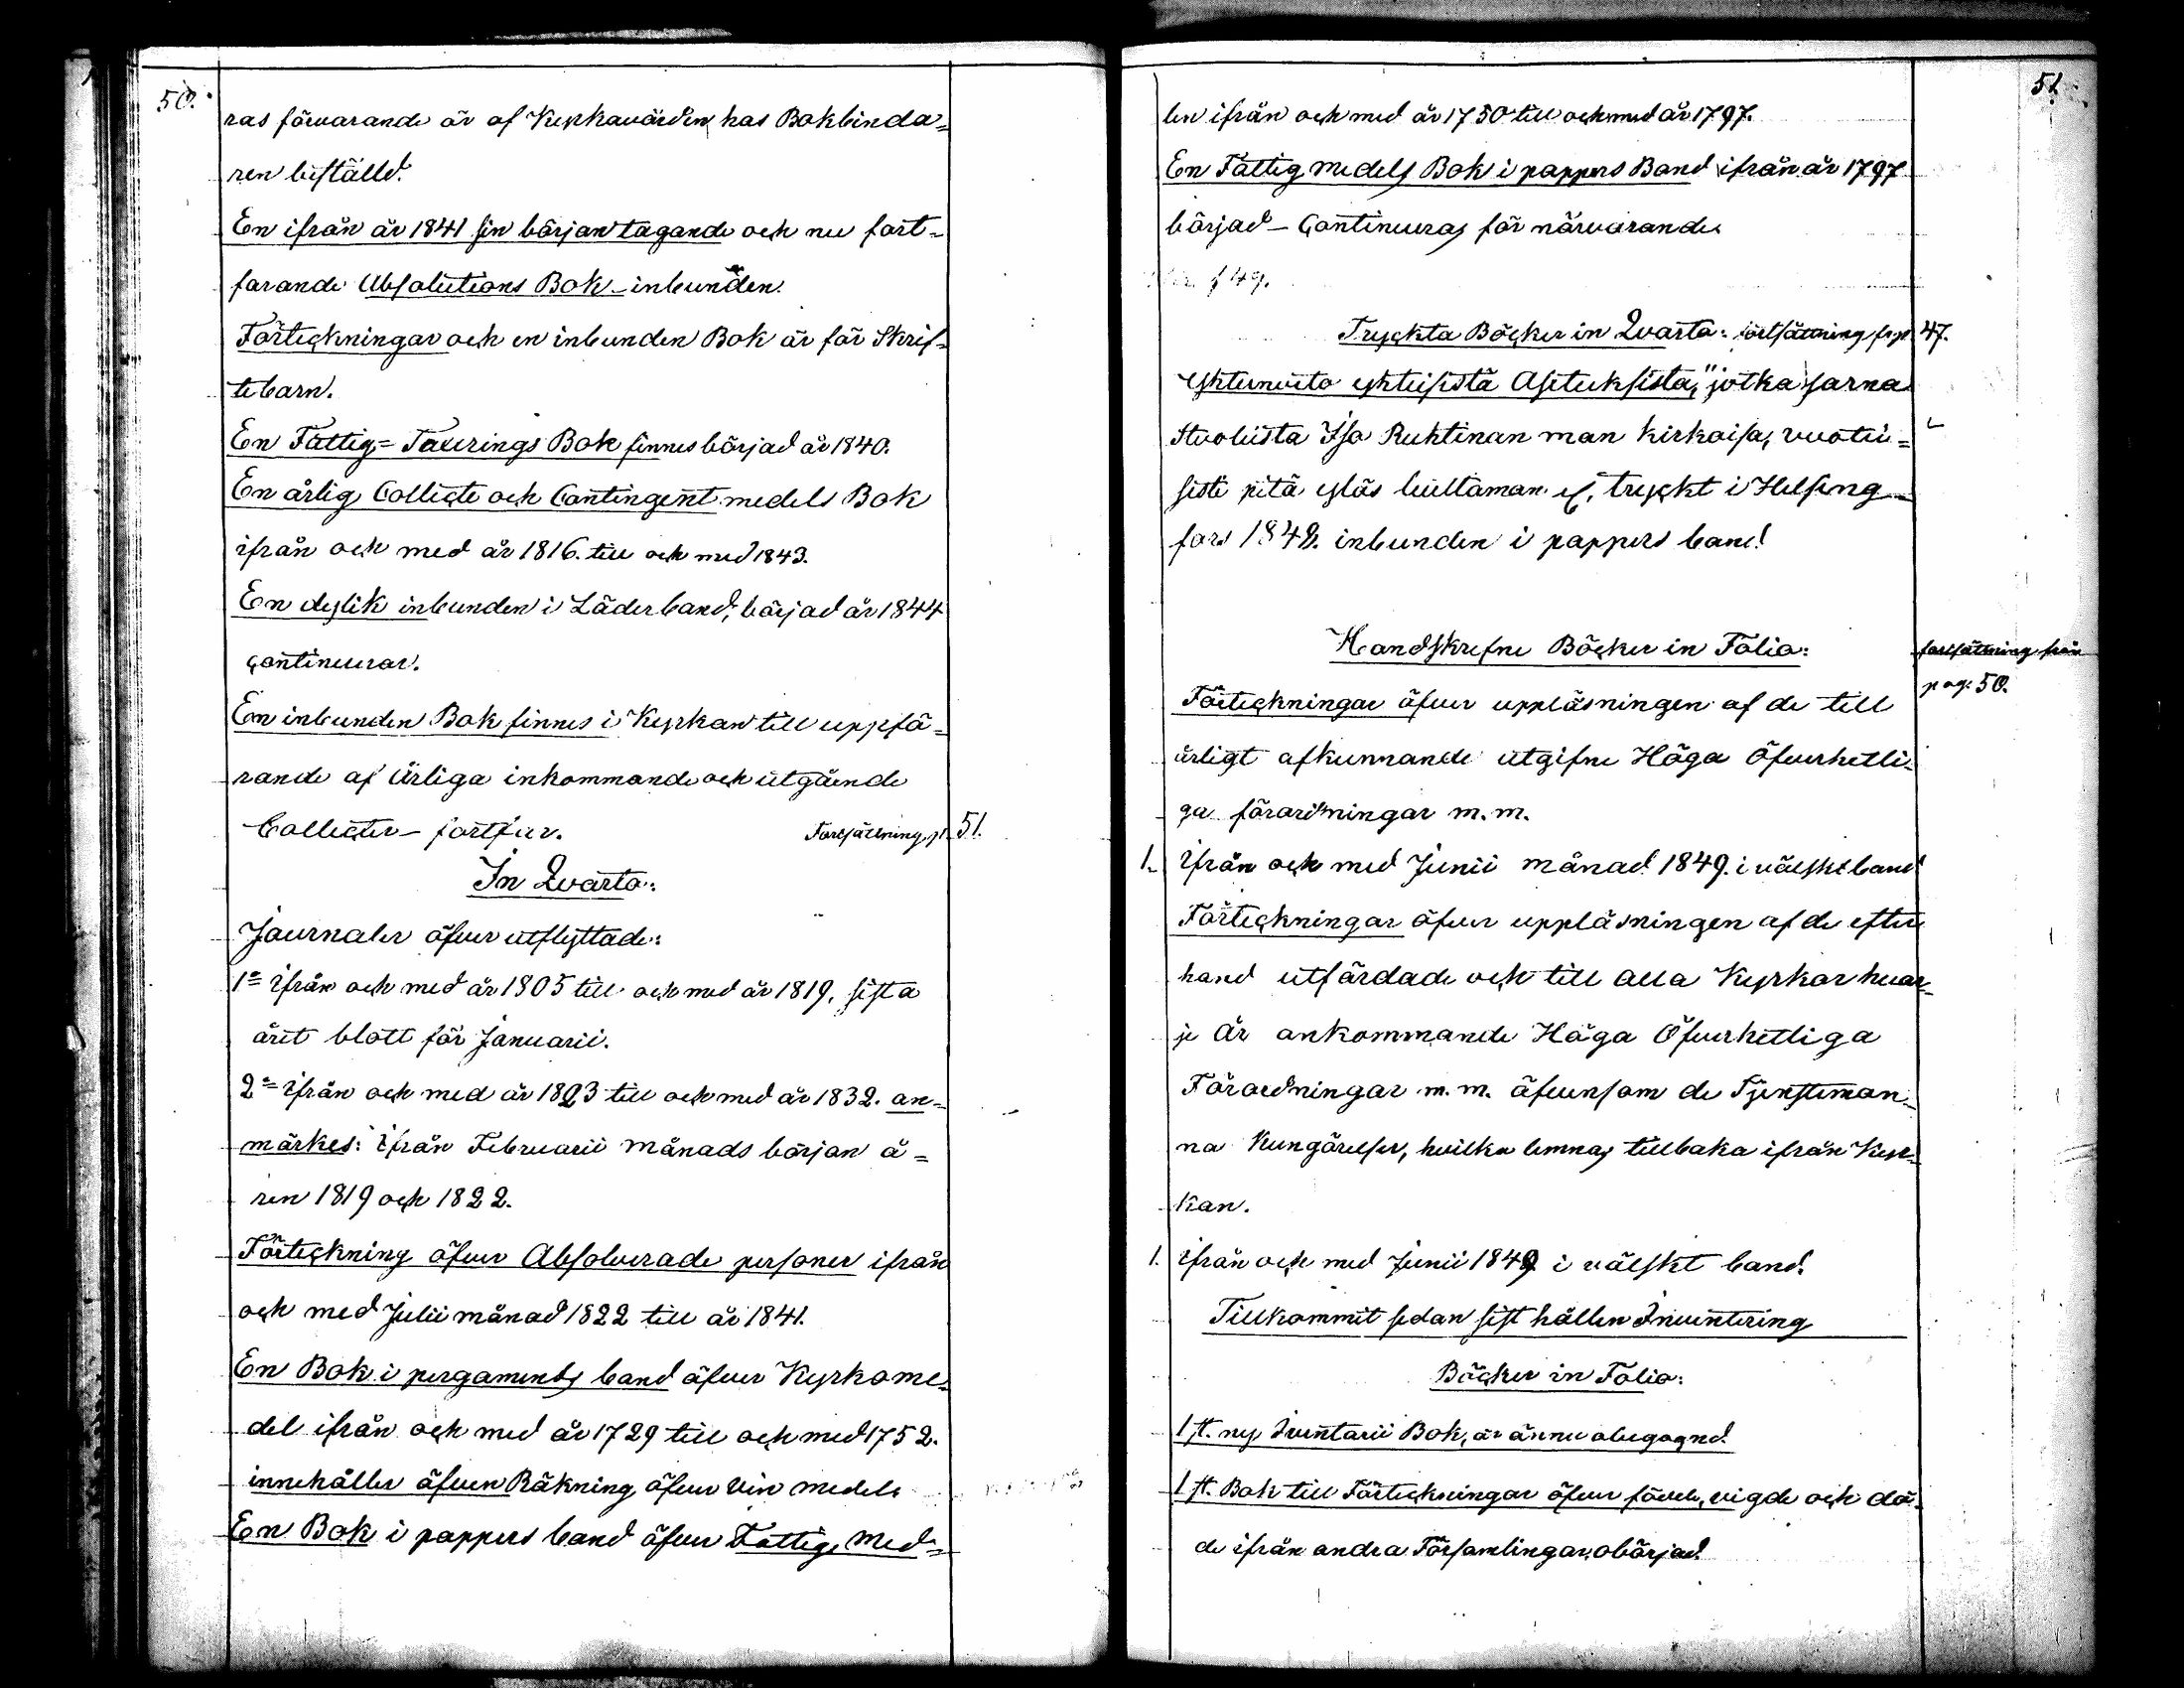 50.
ras förvarande är af Kyrkovärden hos Bokbinda=
ren beställd.
En ifrån år 1841 sin början tagande och nu fort=
farande Absolutions Bok - inbunden.
Förteckningar och en inbunden Bok är för Skrif=
tebarn.
En Fattig= Taxerings Bok finnes börjad år 1840.
En årlig Collecte och Contingent medels Bok
ifrån och med år 1816. till och med 1843.
En dylik inbunden i Läderband, börjad år 1844
continuerar.
En inbunden Bok finnes i Kyrkan till uppfö=
rande af årliga inkommande och utgående
Collecter - fortfar. Fortsättning p. 51.
In Quarto:
Journaler öfver utflyttade:
1º ifrån och med år 1805 till och med år 1819, sista
året blott för Januarii.
2º ifrån och med år 1823 till och med år 1832. an=
märkes: ifrån Februarii månads början å=
ren 1819 och 1822.
Förteckning öfver Absolverade personer ifrån
och med Julii månad 1822 till år 1841.
En Bok i pergaments band öfver Kyrkome=
del ifrån och med år 1729 till och med 1752.
innehåller äfven Räkning öfver Vin medels
En Bok i pappers band öfver Fattig, Med=
51.
len ifrån och med år 1750 till och med år 1797.
En Fattig medels Bok i pappers Band ifrån år 1797
börjad - Continueras för närvarande
149.
Tryckta Böcker in Quarto: fortsättning fr. p. 47.
Yhteneuvto yhteisistä Asetuksista, "jotka sarna
Stuoluista Iso Ruhtinan man Kirkoisa, vuotui=
sesti pitä ylös luettaman" &c, tryckt i Helsing=
fors 1842. inbunden i pappers band
Handskrefne Böcker in Folio: fortsättning från
pag: 50.
Förteckningar öfver uppläsningen af de till
årligt afkunnande utgifne Höga Öfverhetli=
ga förordningar m. m.
1. ifrån och med Junii månad 1849. i välskt band
Förteckningar öfver uppläsningen af de efter
hand utfärdade och till alla Kyrkor hvar=
je år ankommande Höga Öfverhetliga
Förordningar m. m. äfvensom de Tjenstemän=
na Kungörelser, hvilka lemnas tillbaka ifrån Kyr=
kan.
1. ifrån och med Junii 1849 i välskt band.
Tillkommit sedan sist hållen Inventering
Böcker in Folio:
1 st. ny Inventarii Bok, är ännu obegagnad
1 st. Bok till Förteckningar öfver födde, vigde och dö=
de ifrån andra Församlingar, obörjad.